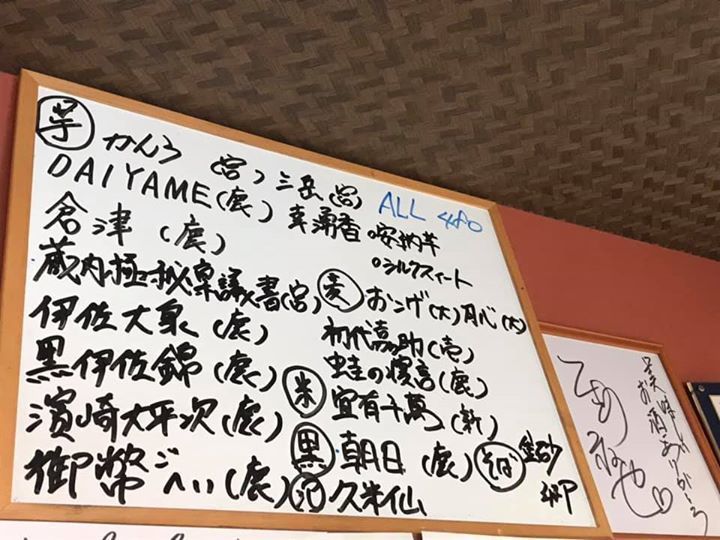 芋 かんろ (宮) 三岳 (宮)
DAIYAME(鹿)
幸湧香 ○安納芋
○シルクスイート
ALL 480
倉津 (鹿)
蔵内極秘稟議書(宮)
伊佐大泉 (鹿)
黒伊佐錦 (鹿)
濵﨑太平次(鹿)
御幣ごへい(鹿)
麦 おこげ(大)月心(大)
初代嘉助(壱)
蛙の寝言(鹿)
米 宜有千萬(新)
黒 朝日 (鹿)
泡 久米仙
そば 金砂郷
美味しい
お酒ありがとう